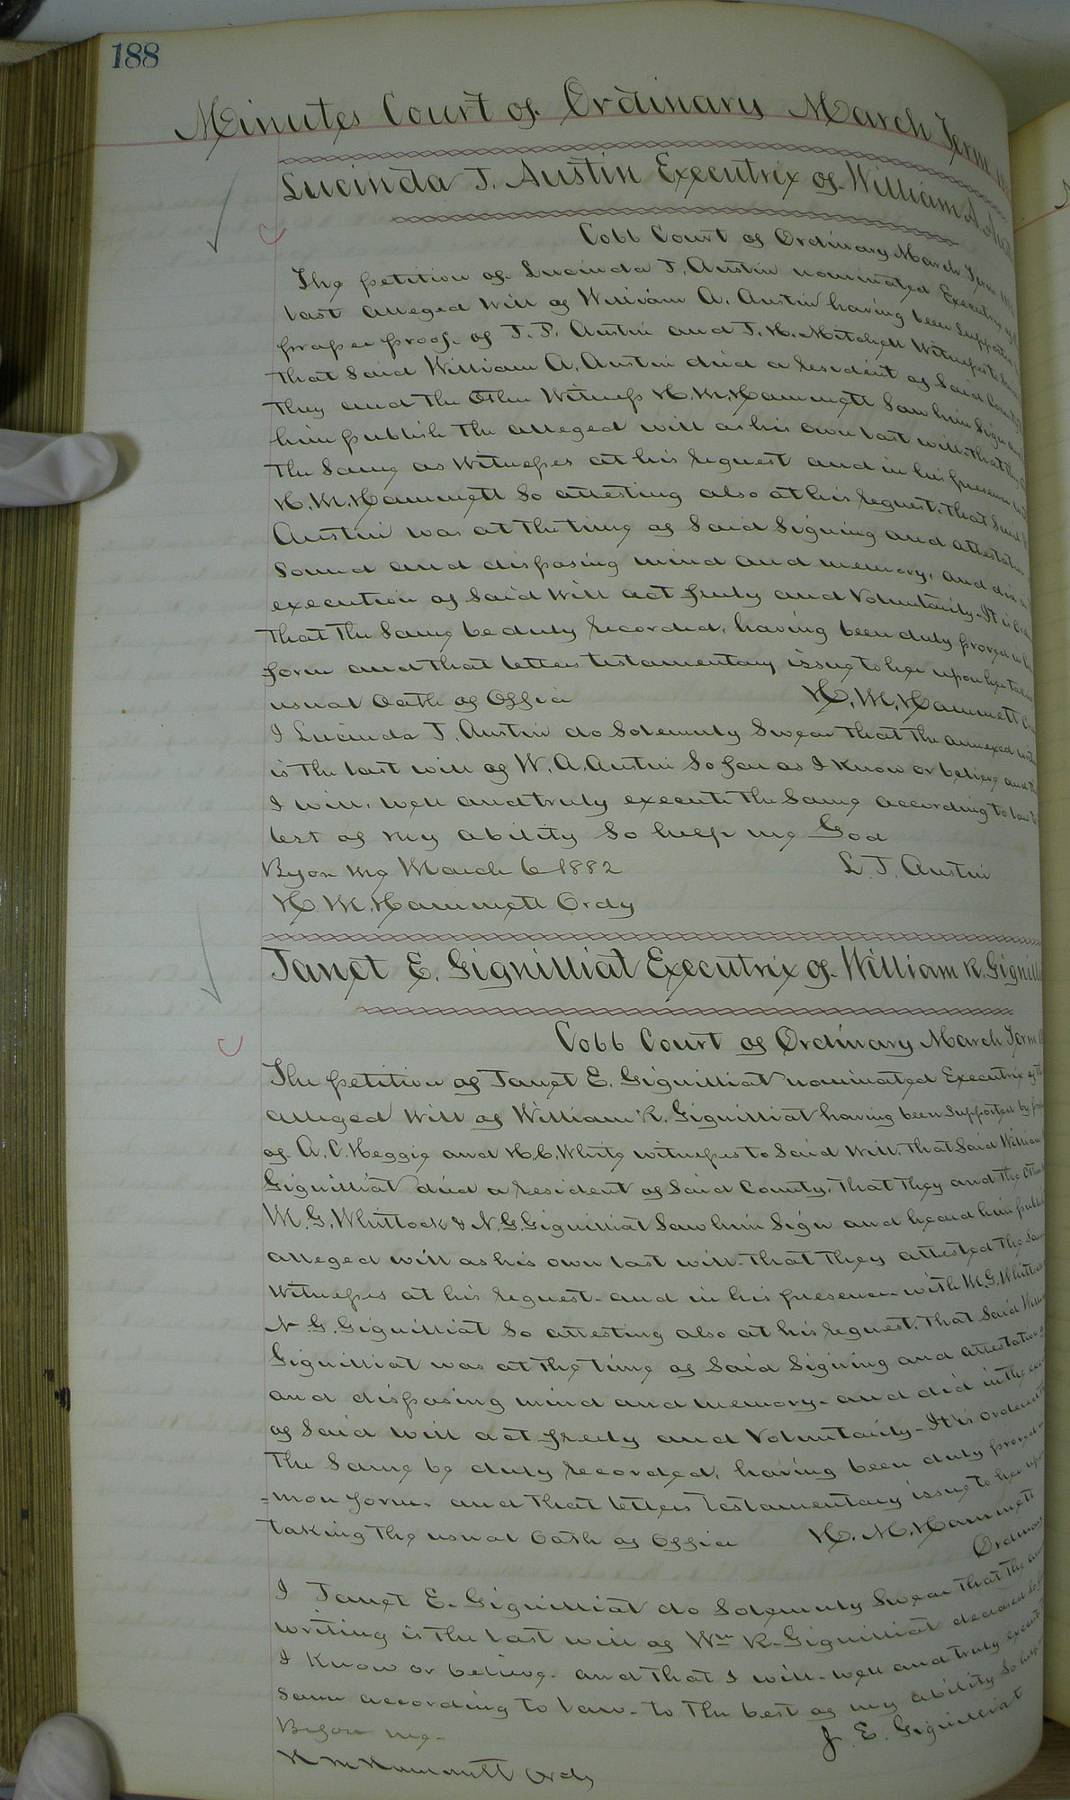 188
Minutes Court of Ordinary March Term
Lucinda T. Austin Executrix of William A.
Cobb Court of Ordinary March Term
The petition of Lucinda T. Austin nominated Executrix of
last alleged will of William A. Austin having been supported
proper proof of T. J. Austin and T. H. Mitchell Witnesses to
that said William A. Austin died a resident of said County
they and the other Witness H. M. Hammett saw him sign and
him publish the alleged will as his own last will that they
the same as Witnesses at his request and in his presence with
H. M. Hammett so attesting also at his request. That said
Austin was at the time of said signing and attestation
sound and disposing mind and memory, and did in
execution of said will act freely and voluntarily. It is
that the same be duly recorded, having been duly proved in
form and that letters testamentary issue to her upon her
usual oath of office H. M. Hammett
I Lucinda T. Austin do solemnly swear that the annexed
is the last will of W. A. Austin so far as I know or believe and
I will, well and truly execute the same according to law to
best of my ability so help me God
Before me March 6 1882 L. T. Austin
H. M. Hammett Ordy
Janet E. Gignilliat Executrix of William R.
Cobb Court of Ordinary March Term
The petition of Janet E. Gignilliat nominated Executrix of
alleged will of William R. Gignilliat having been supported by
of A. C. Heggie and H. C. White witnesses to said will. That said William
Gignilliat died a resident of said County, that they and the
M. G. Whitlock & N. G. Gignilliat saw him sign and heard him
alleged will as his own last will. that they attested the
witnesses at his request. and in his presence with M. G.
N. G. Gignilliat so attesting also at his request. That said
Gignilliat was at the time of said signing and attestation
and disposing mind and memory. and did in the
of said will act freely and voluntarily - It is ordered
the same be duly recorded, having been duly proved
=mon form. and that letters testamentary issue to her
taking the usual oath of office H. M. Hammett
Ordinary
I Janet E. Gignilliat do solemnly swear that the
writing is the last will of Wm R. Gignilliat deceased
I know or believe. and that I will. well and truly
same according to law. to the best of my ability so help
Before me. J. E. Gignilliat
H M Hammett Ordy